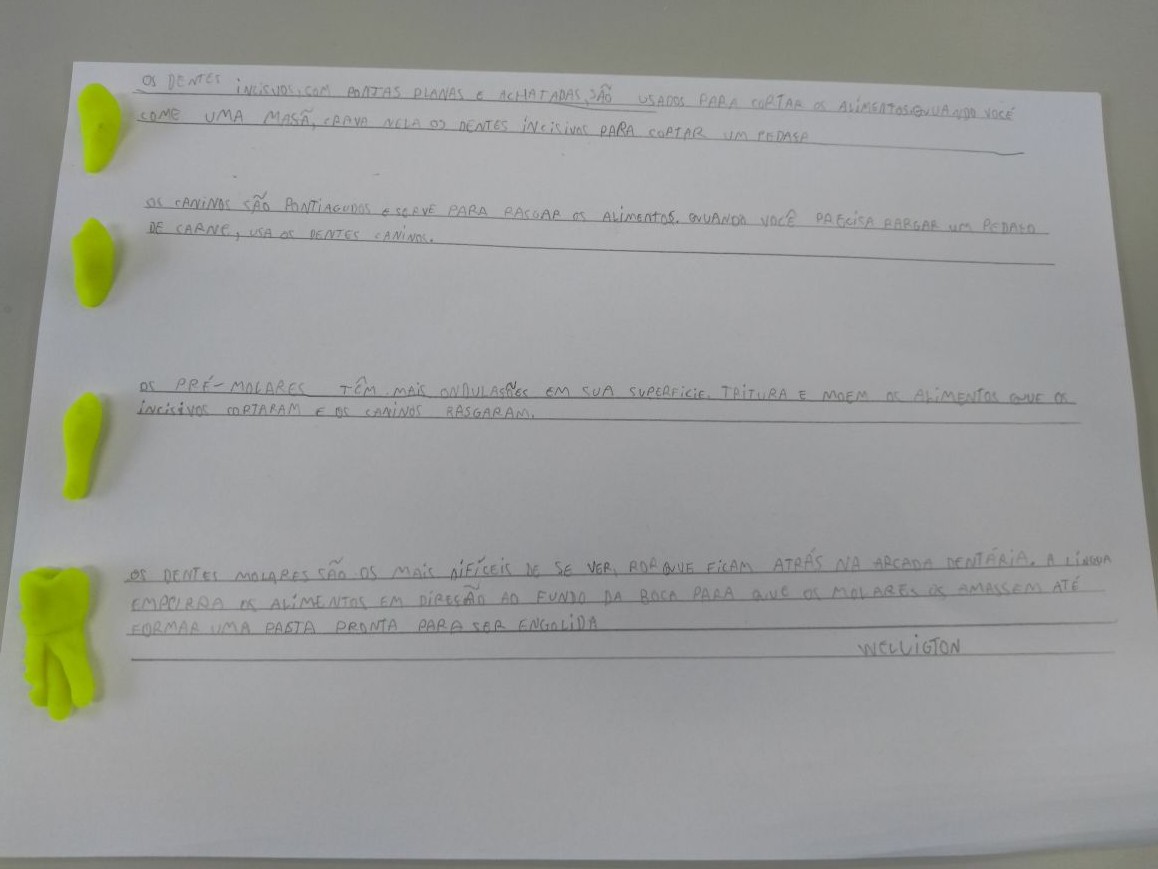 OS DENTES INCISIVOS, COM PONTAS PLANAS E ACHATADAS, SÃO USADOS PARA CORTAR OS ALIMENTOS. QUANDO VOCÊ
COME UMA MASÃ, CRAVA NELA OS DENTES INCISIVOS PARA CORTAR UM
OS CANINOS SÃO PONTIAGUDOS E SERVE PARA RASGAR OS ALIMENTOS. QUANDO VOCÊ PRECISA RARGAR UM PEDAÇO
DE CARNE, USA OS DENTES CANINOS.
OS PRÉ-MOLARES TÊM MAIS ONDULASÕES EM SUA SUPERFICIE. TRITURA E MOEM OS ALIMENTOS QUE OS
INCISIVOS CORTARAM E OS CANINOS RASGARAM.
OS DENTES MOLARES SÃO OS MAIS DIFÍCEIS DE SE VER, PORQUE FICAM ATRÁS NA ARCADA DENTÁRIA. A LÍNGUA
EMPURRA OS ALIMENTOS EM DIREÇÃO AO FUNDO DA BOCA PARA QUE OS MOLARES OS AMASSEM ATÉ
FORMAR UMA PASTA PRONTA PARA SER ENGOLIDA
WELLIGTON